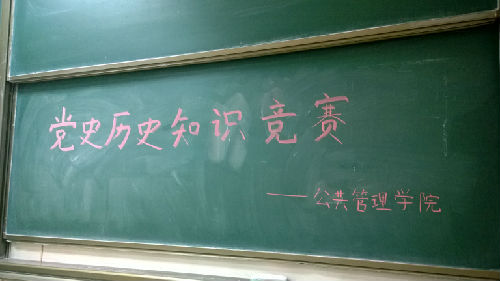 党史历史知识竞赛
——公共管理学院